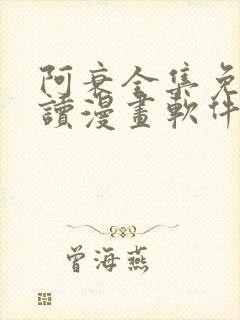 阿衰全集免
讀漫畫軟件
曾海燕